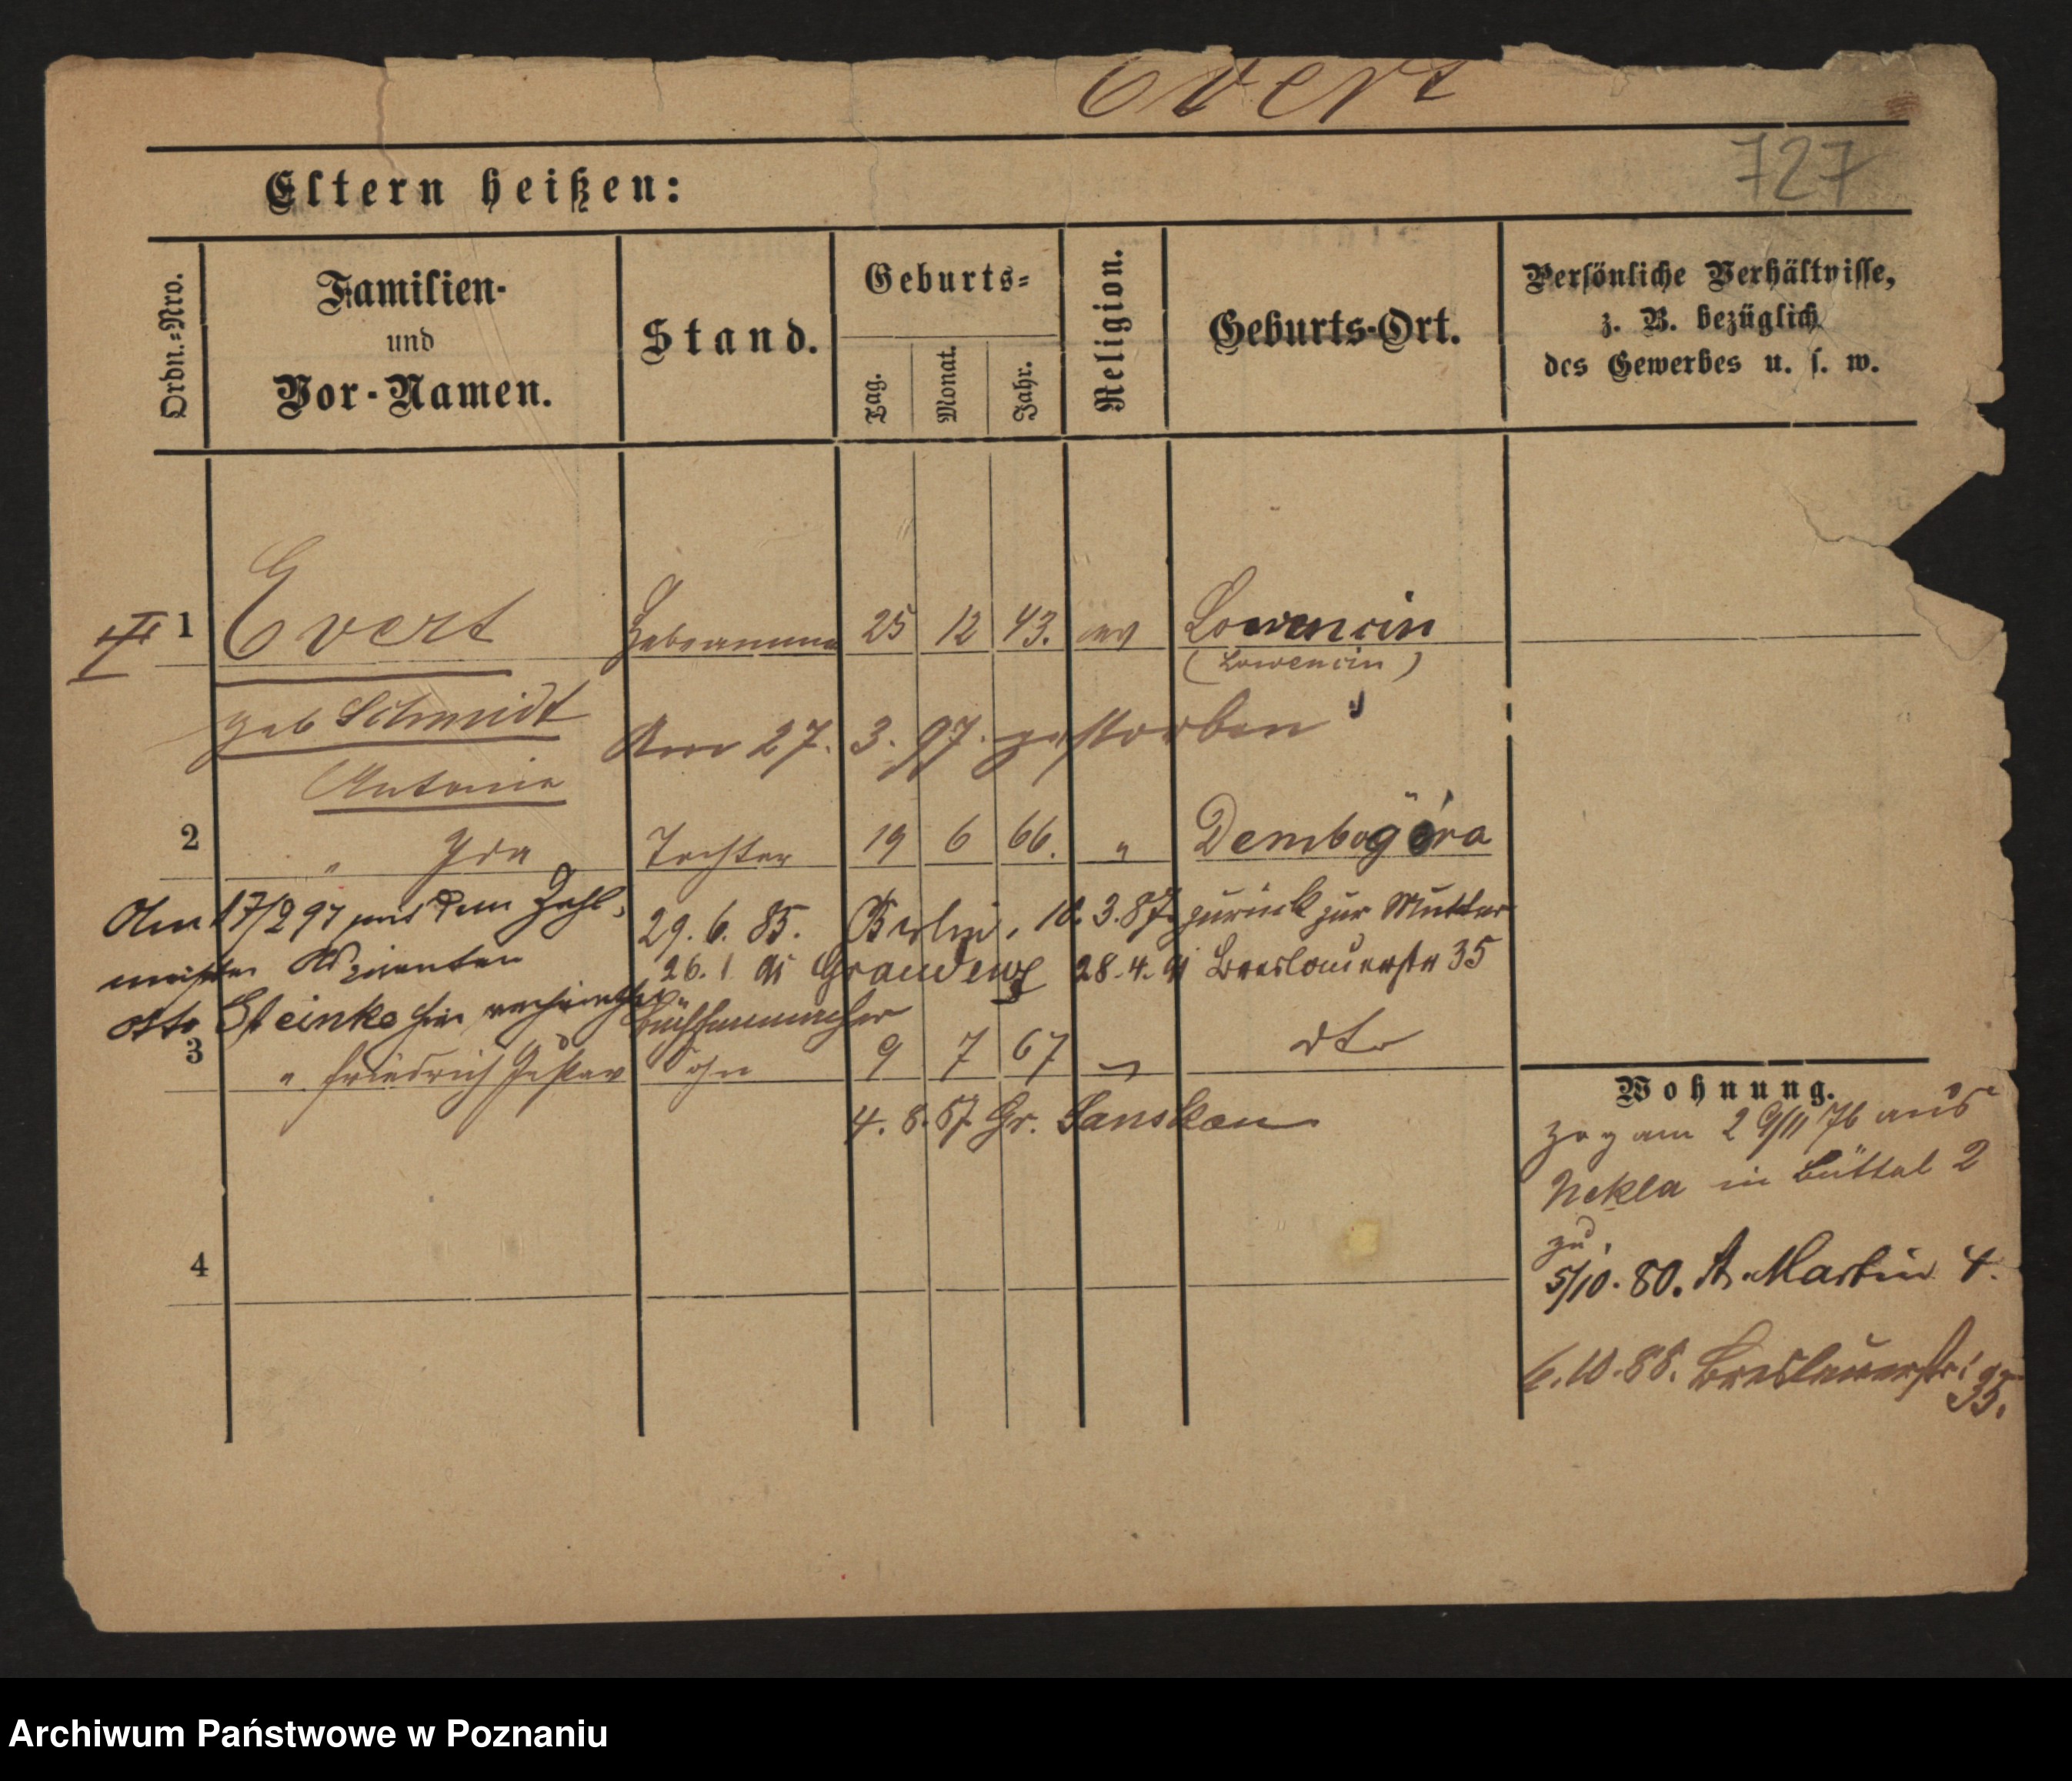 Evert
727
Eltern heißen:
Ordn.-Nro.
Familien-
und
Vor-Namen.
Stand.
Geburts-
Tag.
Monat.
Jahr.
Religion.
Geburts-Ort.
Persönliche Verhältnisse,
z. B. bezüglich
des Gewerbes u. s. w.
1 Evert Hebeamme 25 12 43. ev Lowencin
(Lowencin)
geb Schmidt
Am 27. 3. 97. gestorben
Antonie
2 " Ida Tochter 19 6 66. " Dembogóra
Am 17/2 97 mit dem Zahl-
29. 6. 85. Berlin, 10. 3. 87. zurück zur Mutter
meister Aspiranten
26. 1. 91 Graudenz 28. 4. 91 Breslauerstr 35
Otto Steinke hier verheirathet
Büchsenmacher
3 " Friedrich Gustav Sohn 9 7 67 " dto
4. 8. 87 Gr. Lansken
4
Wohnung.
Zog am 29/11 76 aus
Nekla in Büttel 2
zu.
5/10. 80. St. Martin 4.
6. 10. 88. Breslauerstr.
35.
Archiwum Państwowe w Poznaniu